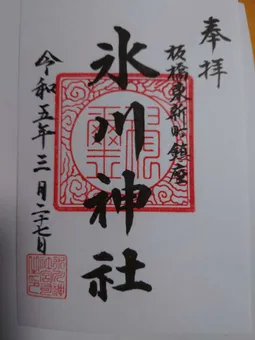 奉拝
板橋東新町鎮座
氷川神社
令和五年三月二十七日